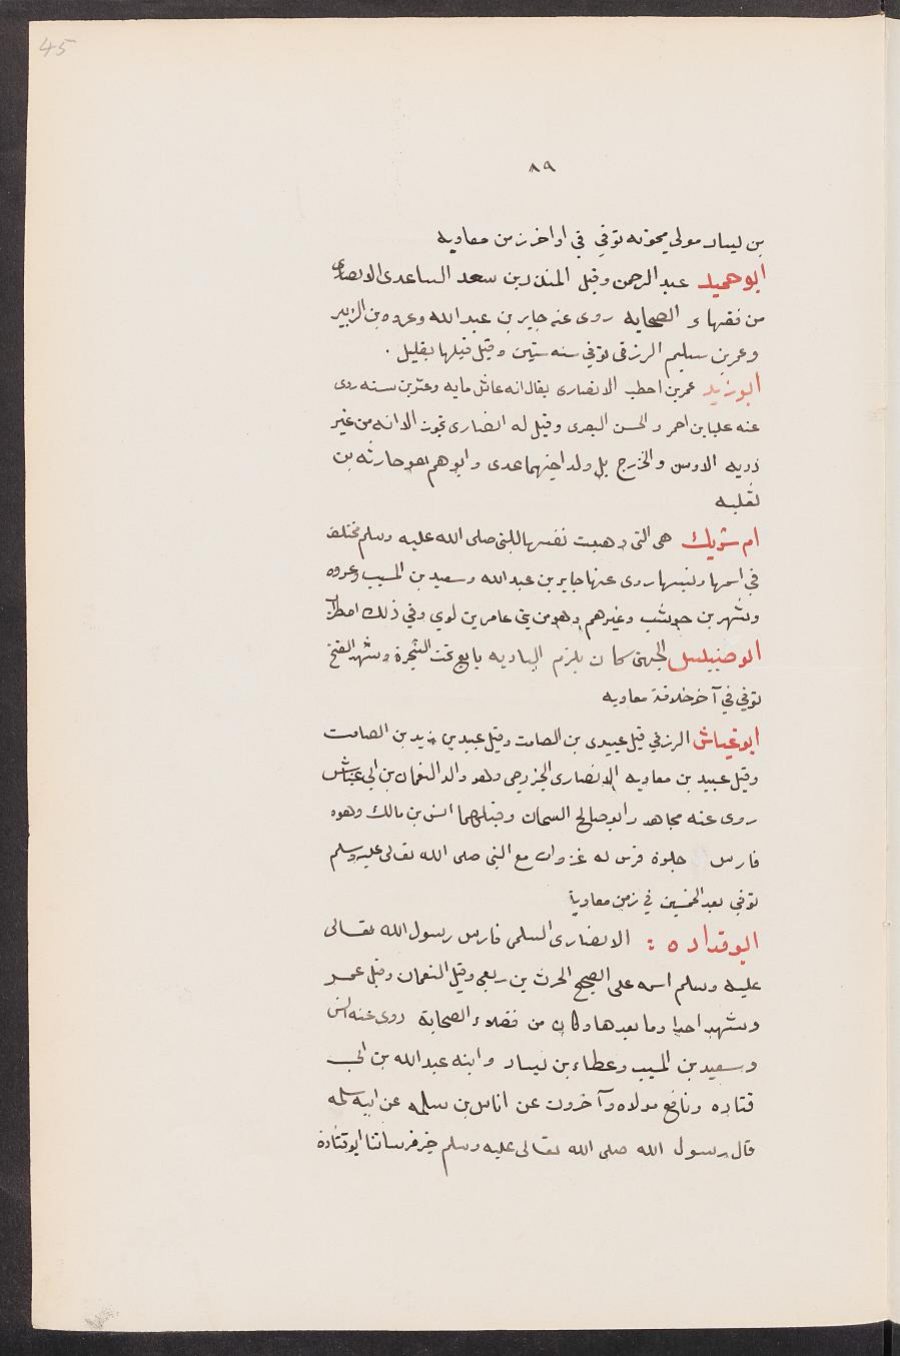 45
٨٩
بن ليسار مولى ميمونه توفي في اواخر زمن معاويه
ابو حميد عبد الرحمن وقيل المنذر بن سعد الساعدى الانصارى
من فقهاء الصحابه روى عنه جابر بن عبد الله وعروه بن الزبير
وعمر بن سليم الزرقى توفي سنه ستين وقيل قبلها بقليل .
ابو زيد عمر بن احطب الانصارى يقال انه عاش مايه وعشرين سنه روى
عنه علبا بن احمر والحسن البصرى وقيل له انصارى تجوز الا انه من غير
ذريه الاوس والخزرج بل ولد اخيهما عدى وابوهم هو حارثه بن
ثعلبه
ام شريك هى التى وهبت نفسها للنبى صلى الله عليه وسلم مختلف
في اسمها ونسبها روى عنها جابر بن عبد الله وسعيد بن المسيب وعروه
وشهر بن حوشب وغيرهم وهو من بنى عامر بن لوي وفي ذلك
الجهنى كان يلزم الباديه بايع تحت الشجرة وشهد الفتح
توفي في آخر خلافة معاويه
ابو عياش الزرقي قيل عبيدى بن الصامت وقيل عبيد بن زيد بن الصامت
وقيل عبيد بن معاويه الانصارى الخزرجى وهو والد النعمان بن ابى عياش
روى عنه مجاهد وابو صالح السمان وقبلهما انس بن مالك وهوه
فارس جلوة فرس له غزوات مع النبى صلى الله تعالى عليه وسلم
توفي بعد الخمسين في زمن معاوية
ابو قداده : الانصارى السلمى فارس رسول الله تعالى
عليه وسلم اسمه على الصحيح الحرث بن ربعى وقيل النعمان وقيل عمر
وشهد احدا وما بعدها وكان من فضلاء الصحابة روى عنه انس
وسعيد بن المسيب وعطاء بن ليسار وابنه عبد الله بن ابى
قتاده ونافع مولاه وآخرون عن اناس بن سلمه عن ابيه سلمه
قال رسول الله صلى الله تعالى عليه وسلم خير فرساننا ابو قتادة